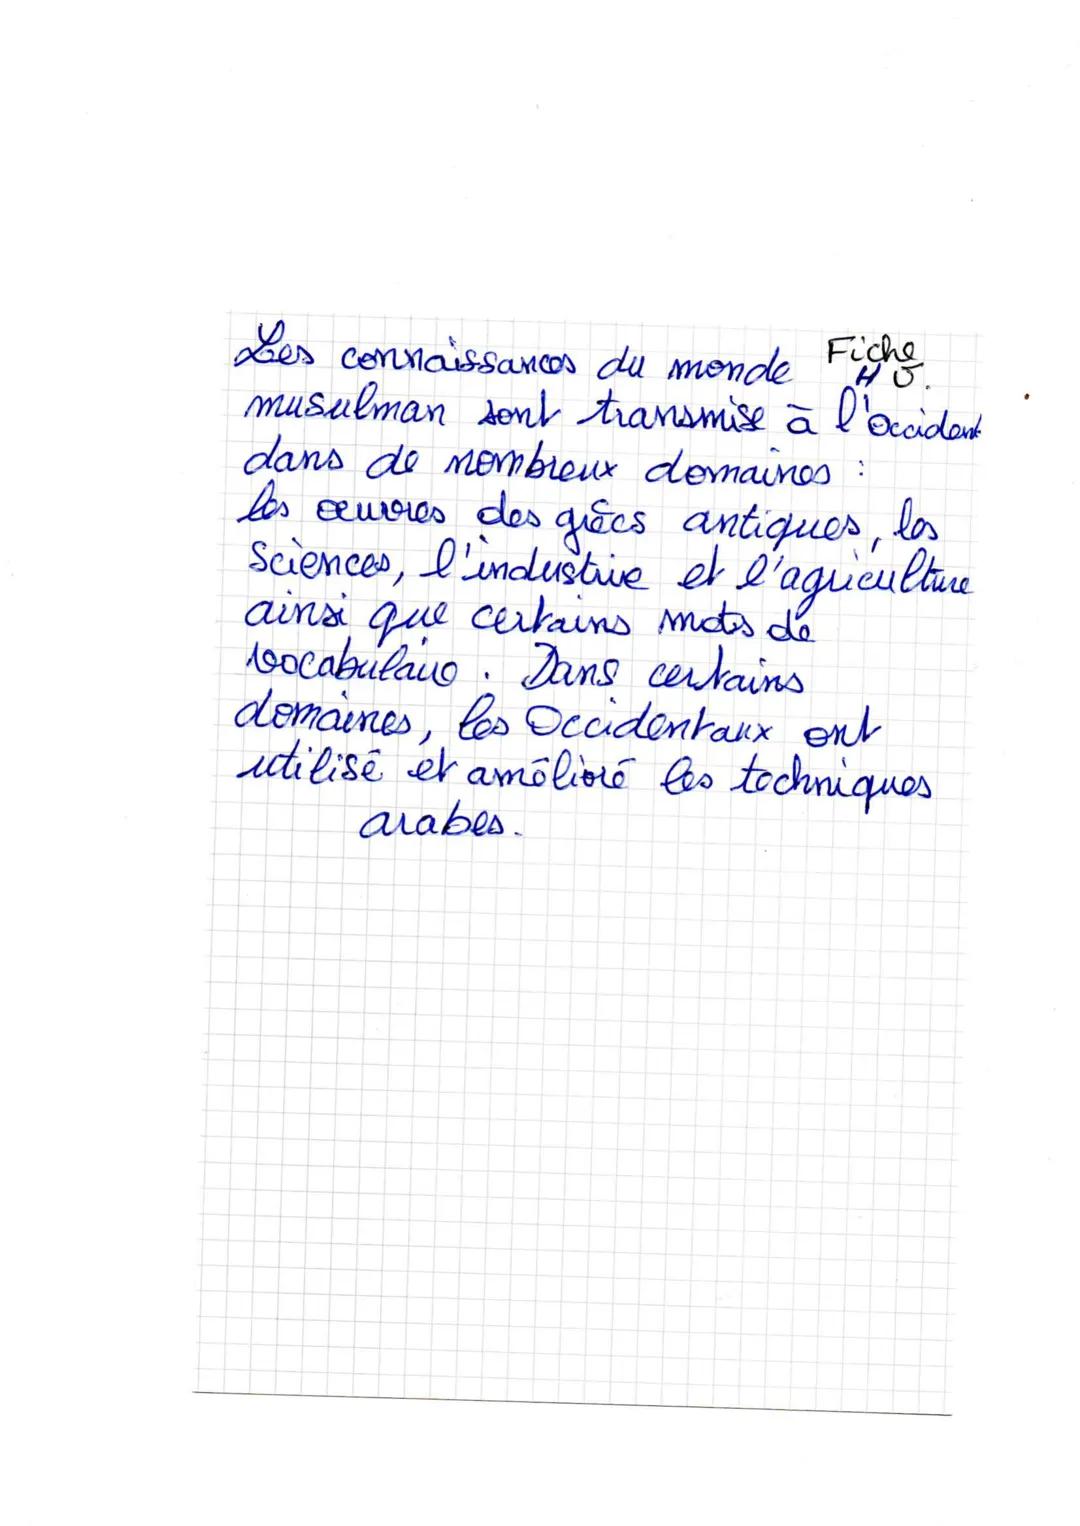 Les connaissances du monde Fiche
H 5.
musulman sont transmise à l'occident
dans de nombreux domaines :
les œuvres des grècs antiques, les
Sciences, l'industrie et l'agriculture
ainsi que certains mots de
vocabulaire. Dans certains
domaines, les Occidentaux ont
utilisé et amélioré les techniques
arabes.